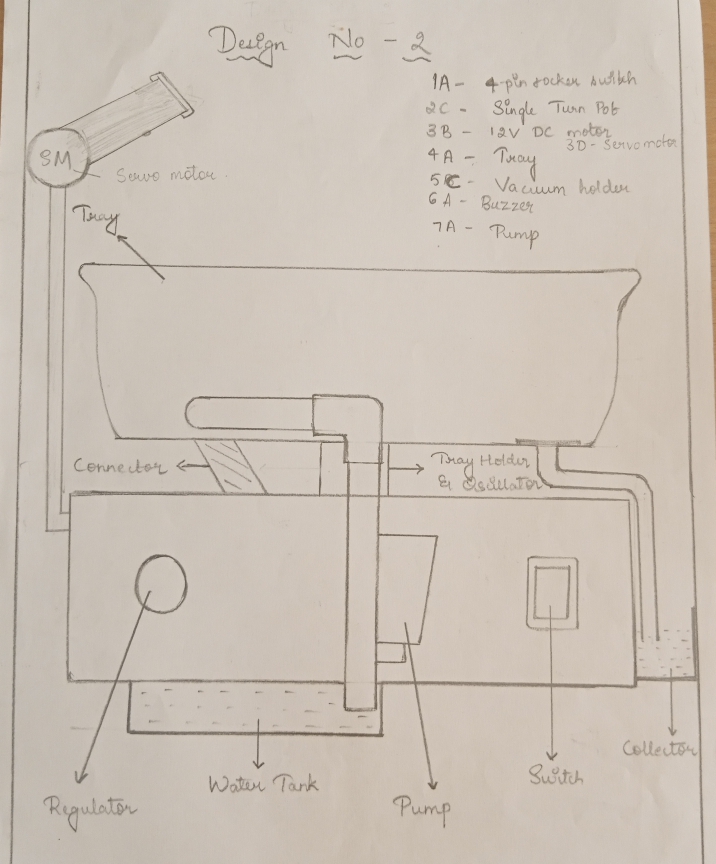 Design No - 2
1A - 4-pin rocker switch
2C - Single Turn Pot
3B - 12V DC motor
3D - Servomotor
4A - Tray
5C - Vacuum holder
6A - Buzzer
7A - Pump
SM
Servo motor.
Tray
Connector
Tray Holder
& Oscillator
Collector
Switch
Water Tank
Pump
Regulator